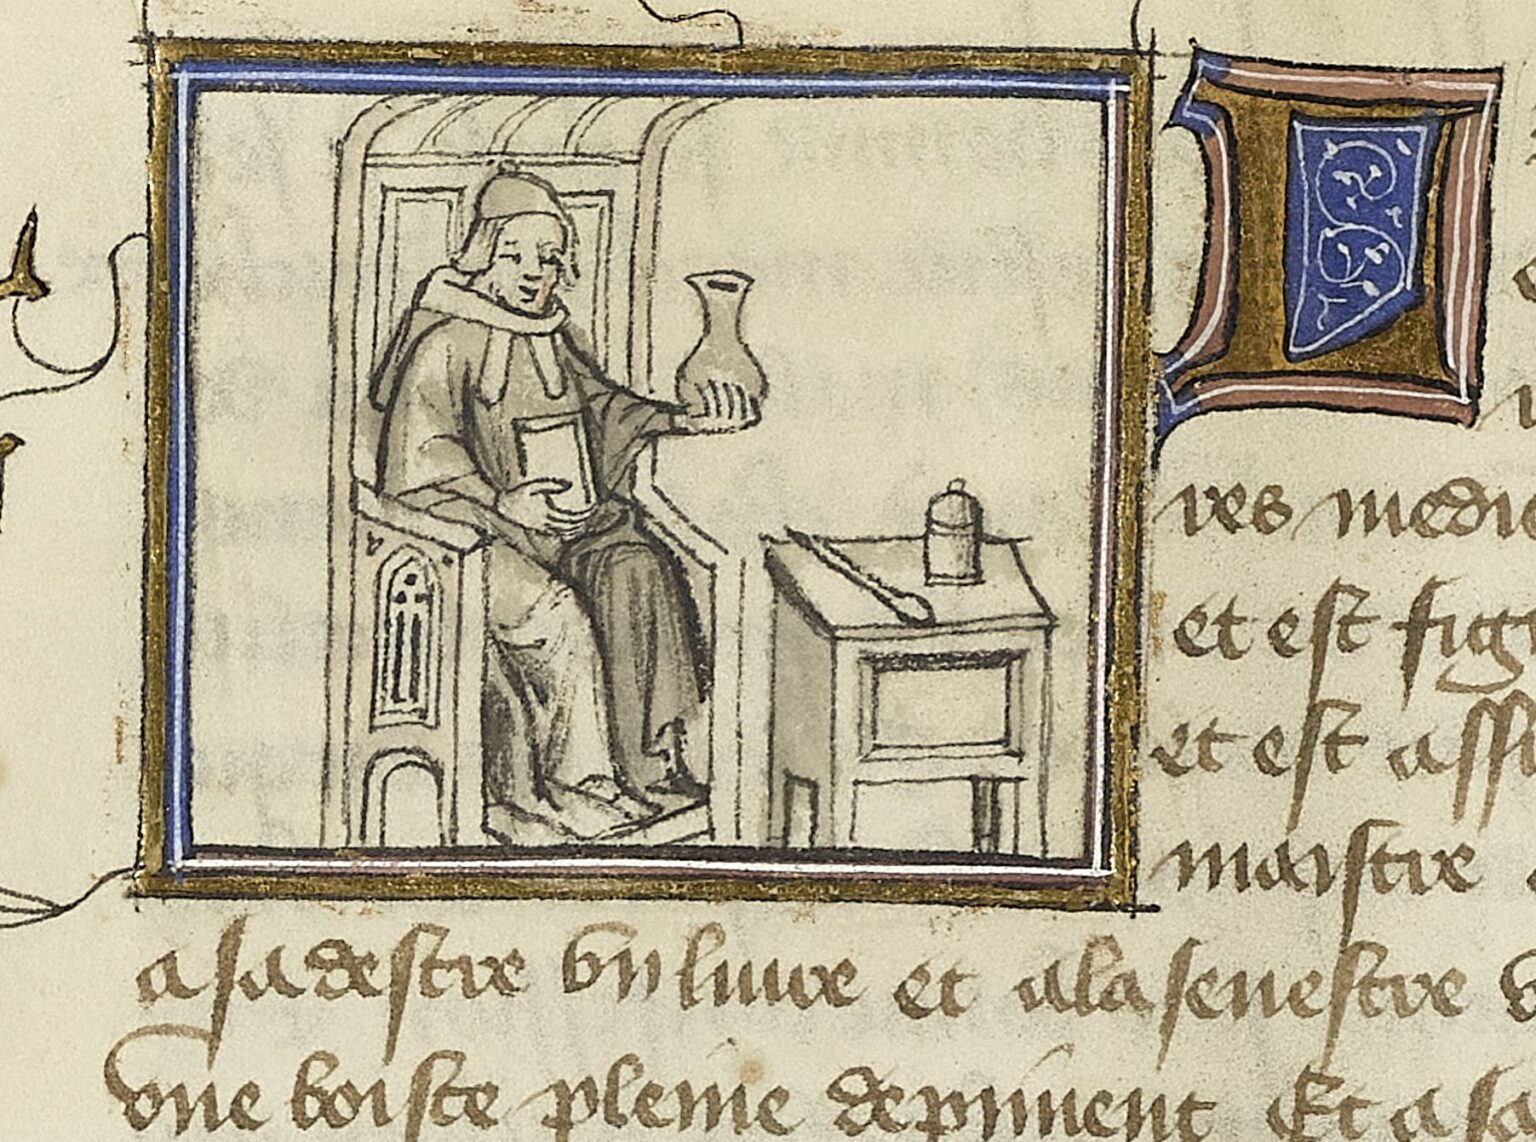 D
res medic
et est figu
et est assi
maistre
a sa destre vn liure et a la senestre v
vne boiste pleine de piment Et a sa